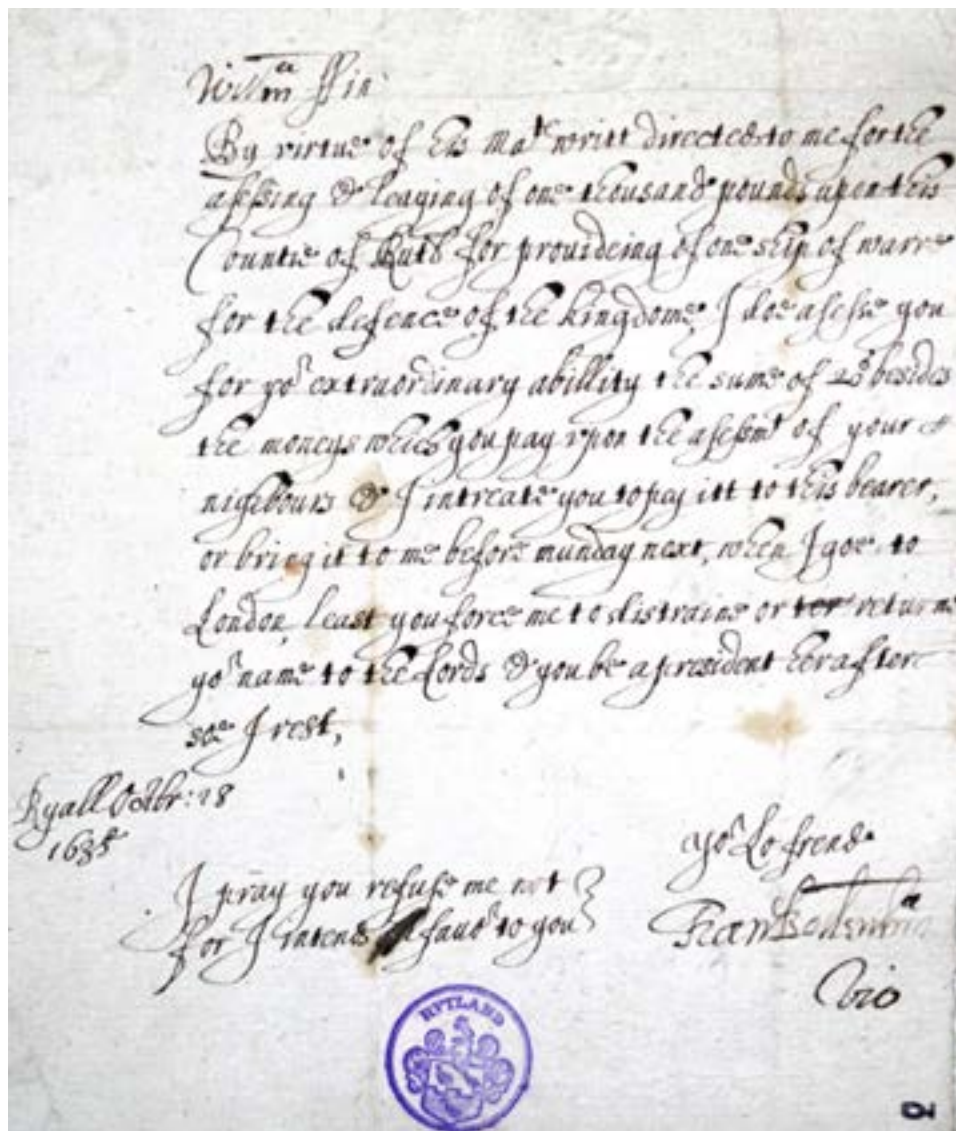 Willm ffin
By virtue of his Mats writt directed to me for the
assessing & leaying of one thousand pounds upon this
Countie of Rutd for provideing of one ship of warre
for the defence of the kingdome, I doe assesse you
for yor extraordinary abillity the sume of 20s besides
the moneys which you pay upon the assessmt of your
nighbours & I intreate you to pay itt to this bearer,
or bring it to me before munday next, when I goe to
London, least you force me to distraine or returne
yor name to the Lords & you be a president herafter
soe I rest,
Ryall Octbr: 18
1635
yor Lo frend
I pray you refuse me not
for I intend favor to you
Fran
vic
RUTLAND